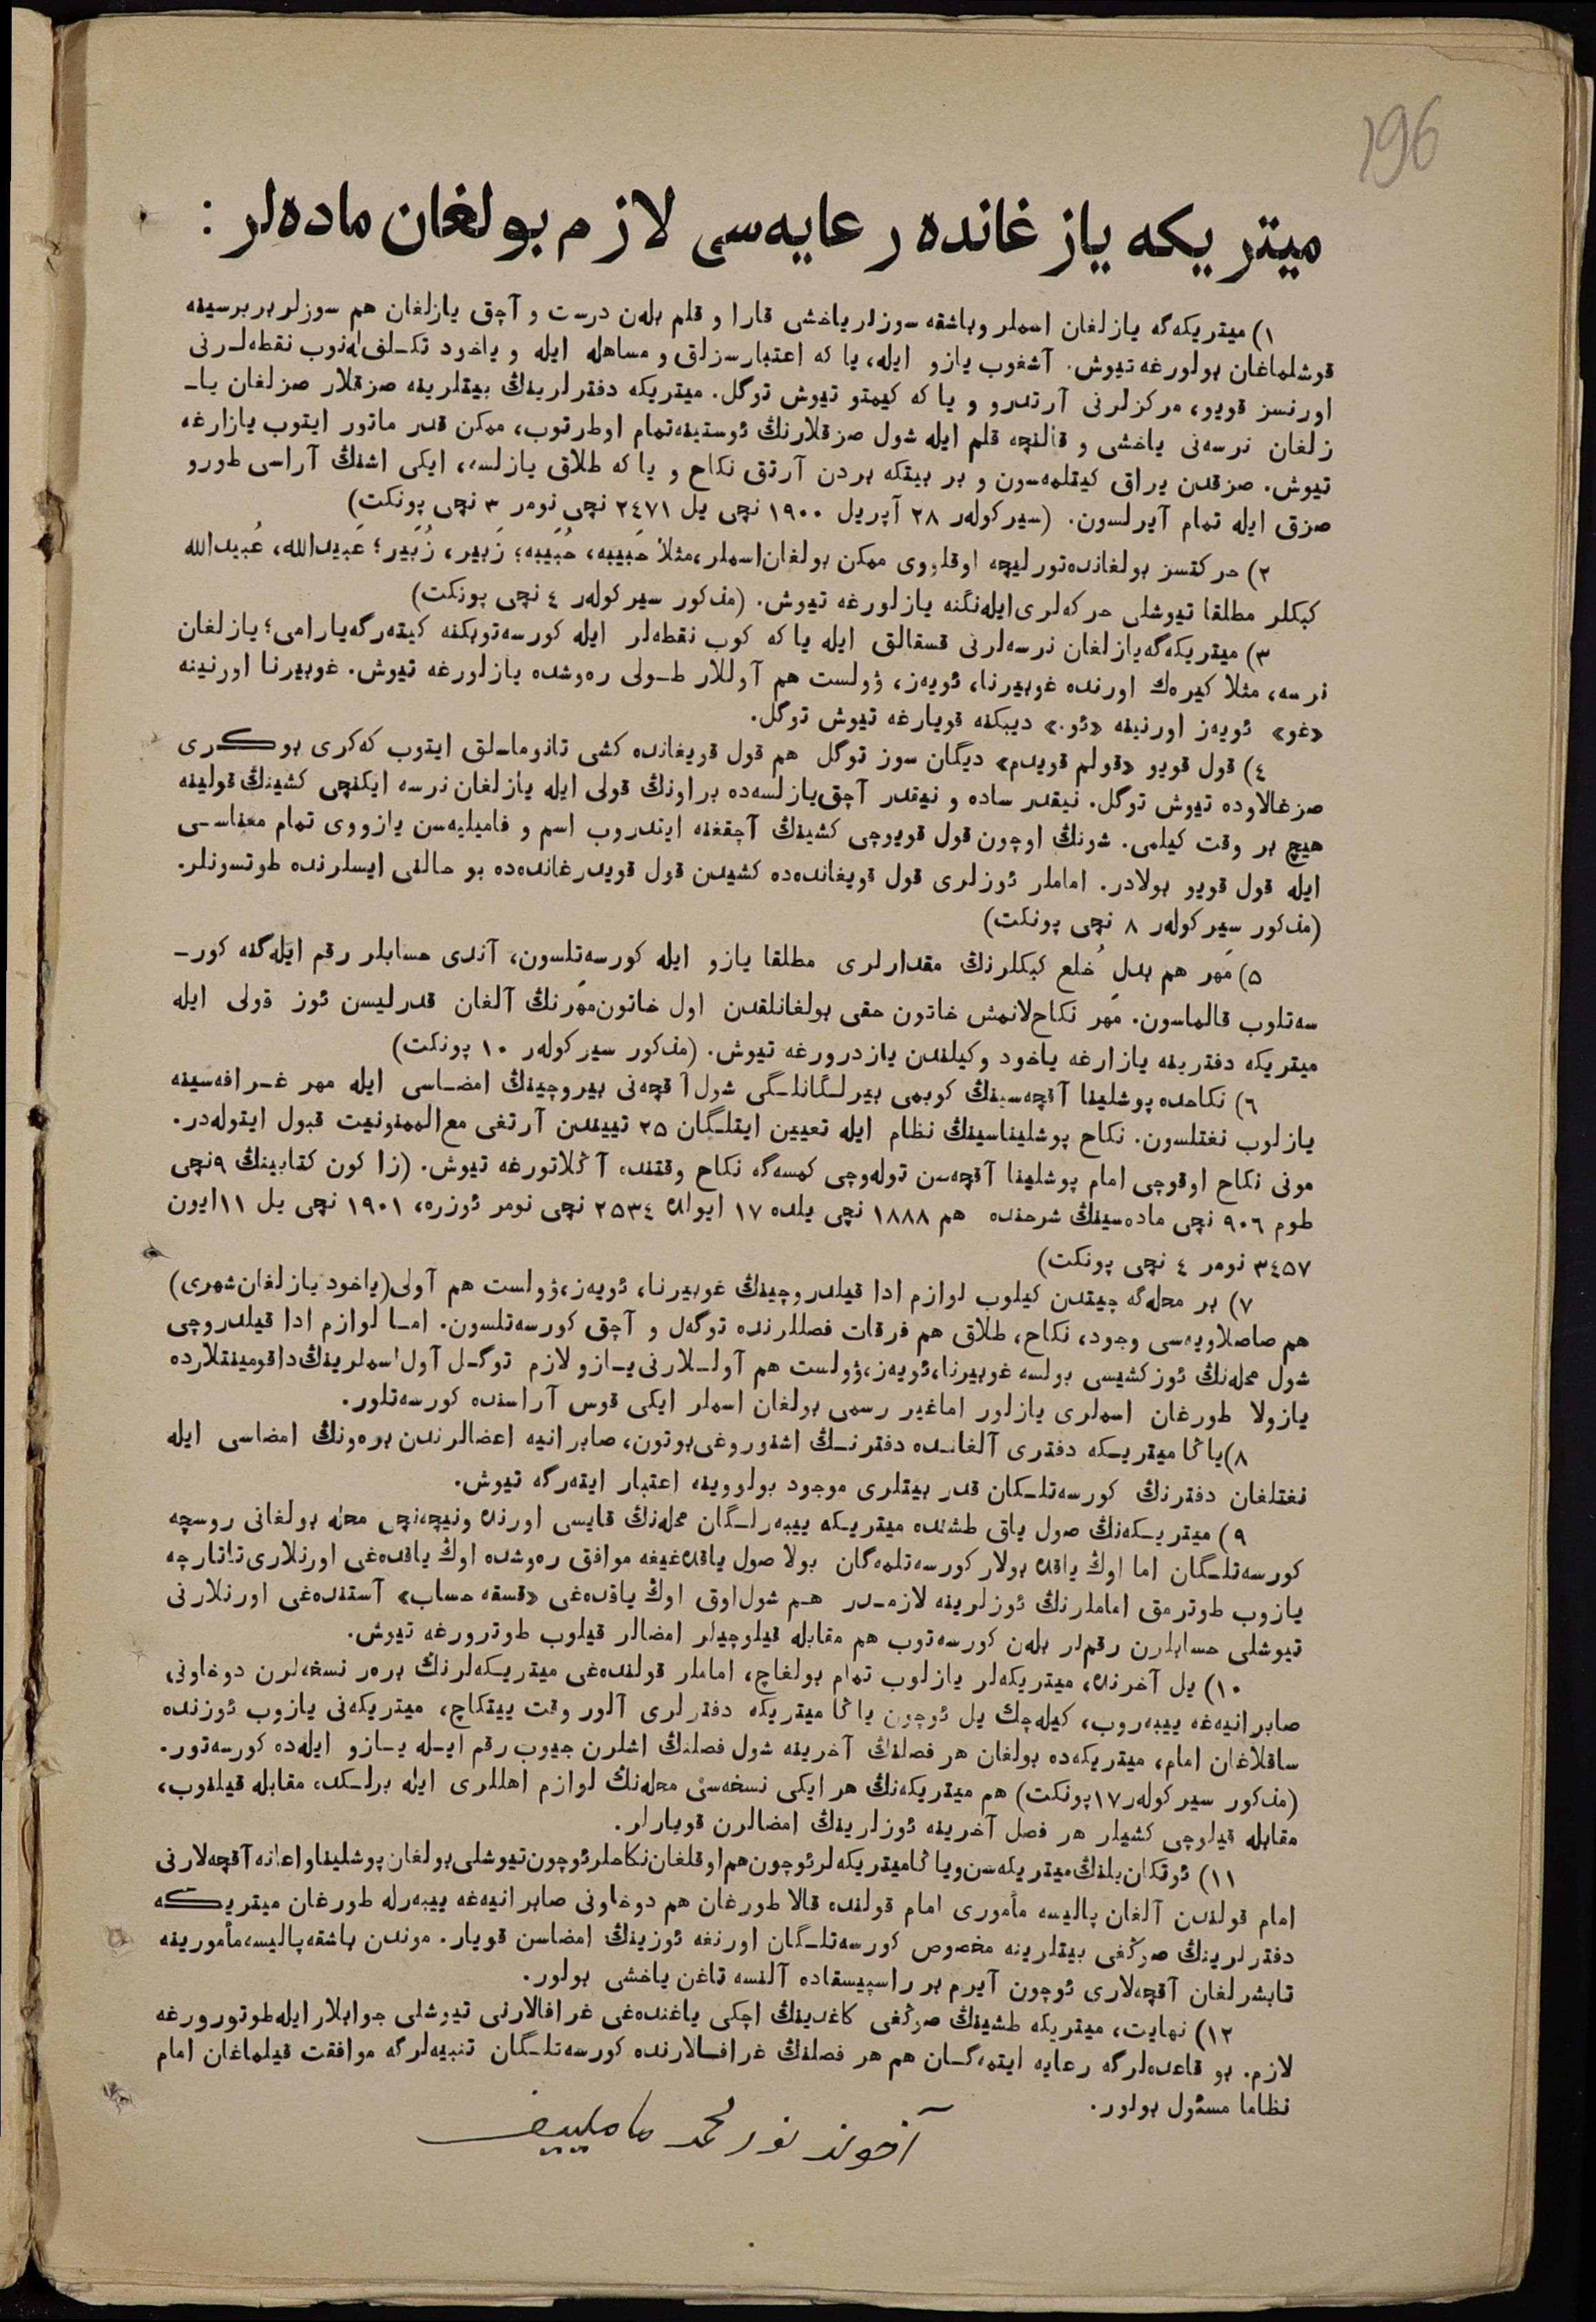 196
ميتريكه يازغانده رعايه‌سى لازم بولغان ماده‌لر :
١) ميتريكه‌گه يازلغان اسملر وباشقه سوزلر ياخشى قارا و قلم بله‌ن درست و آچق يازلغان هم سوزلر بر برسينه
قوشلماغان بولورغه تيوش. آشغوب يازو ايله، يا كه اعتبارسزلق و مساهله ايله و ياخود تكـلف له‌نوب نقطه‌لـرنى
اورنسز قويو، مركزلرنى آرتدرو و يا كه كيمتو تيوش توگل. ميتريكه دفترلرينڭ بيتلرينه صزقلار صزلغان ياـ
زلغان نرسه‌نى ياخشى و قالنچه قلم ايله شول صزقلارنڭ ئوستينه‌تمام اوطرتوب، ممكن قدر ماتور ايتوب يازارغه
تيوش. صزقدن يراق كيتلمه‌سون و بر بيتكه بردن آرتق نكاح و يا كه طلاق يازلسه، ايكى اشنڭ آراسى طورو
صزق ايله تمام آيرلسون. (سيركوله‌ر ٢٨ آپريل ١٩٠٠ نچى يل ٢٤٧١ نچى نومر ٣ نچى پونكت)
٢) حركتسز بولغانده‌تورليچه اوقلووى ممكن بولغان اسملر،مثلا حَبيبه، حُبَيبه؛ زَبير، زُبَير؛ عَبيدالله، عُبيدالله
كبكلر مطلقا تيوشلى حركه‌لرى ايله‌نگنه يازلورغه تيوش. (مذكور سيركوله‌ر ٤ نچى پونكت)
٣) ميتريكه‌گه‌يازلغان نرسه‌لرنى قسقالق ايله يا كه كوب نقطه‌لر ايله كورسه‌توبكنه كيته‌رگه‌يارامى؛ يازلغان
نرسه، مثلا كيره‌ك اورنده غوبيرنا، ئويه‌ز، ۋولست هم آوللار طـولى ره‌وشده يازلورغه تيوش. غوبيرنا اورنينه
«غو» ئويه‌ز اورنينه «ئو.» ديبكنه قويارغه تيوش توگل.
٤) قول قويو «قولم قويدم» ديگان سوز توگل هم قول قويغانده كشى تانوماسلق ايتوب كه‌كرى بوكـرى
صزغالاوده تيوش توگل. نيقدر ساده و نيقدر آچق‌يازلسه‌ده براونڭ قولى ايله يازلغان نرسه ايكنچى كشينڭ قولينه
هيچ بر وقت كيلمى. شونڭ اوچون قول قويوچى كشينڭ آچقغنه ايتدروب اسم و فاميليه‌سن يازووى تمام معناسـى
ايله قول قويو بولادر. اماملر ئوزلرى قول قويغانده‌ده كشيدن قول قويدرغانده‌ده بو حالنى ايسلرنده طوتسونلر.
(مذكور سيركوله‌ر ٨ نچى پونكت)
۵) مَهر هم بدل خُلع كبكلرنڭ مقدارلرى مطلقا يازو ايله كورسه‌تلسون، آندى حسابلر رقم ايله‌گنه كورـ
سه‌تلوب قالماسون. مَهر نكاح‌لانمش خاتون حقى بولغانلقدن اول خاتون‌مهرنڭ آلغان قدرليسن ئوز قولى ايله
ميتريكه دفترينه يازارغه ياخود وكيلندن يازدرورغه تيوش. (مذكور سيركوله‌ر ١٠ پونكت)
٦) نكاحده پوشلينا آقچه‌سينڭ كوبمى بيرلـگانلـگى شول آقچه‌نى بيروچينڭ امضـاسى ايله مهر غـرافه‌سينه
يازلوب نغتلسون. نكاح پوشليناسينڭ نظام ايله تعيين ايتلـگان ٢۵ تييندن آرتغى مع‌الممنونيت قبول ايتوله‌در.
مونى نكاح اوقوچى امام پوشلينا آقچه‌سن توله‌وچى كمسه‌گه نكاح وقتنده آڭلاتورغه تيوش. (زاكون كتابينڭ ٩نچى
طوم ٩٠٦ نچى ماده‌سينڭ شرحنده هم ١٨٨٨ نچى يلده ١٧ ايولده ٢۵٣٤ نچى نومر ئوزره، ١٩٠١ نچى يل ١١ايون
٣٤۵٧ نومر ٤ نچى پونكت)
٧) بر محله‌گه چيتدن كيلوب لوازم ادا قيلدروچينڭ غوبيرنا، ئويه‌ز،ۋولست هم آولى(ياخود يازلغان‌شهرى)
هم صاصلاويه‌سى وجود، نكاح، طلاق هم فرقات فصللرنده توگه‌ل و آچق كورسه‌تلسون. امـا لوازم ادا قيلدروچى
شول محله‌نڭ ئوز كشيسى بولسه غوبيرنا،ئويه‌ز،ۋولست هم آولـلارنى‌يـازو لازم توگـل آول اسملرينڭ داقومينتلارده
يازولا طورغان اسملرى يازلور اماغير رسمى بولغان اسملر ايكى قوس آراسنده كورسه‌تلور.
٨)ياڭا ميتريـكه دفترى آلغانـده دفترنـڭ اشنوروغى‌بوتون، صابرانيه اعضالرندن بره‌ونڭ امضاسى ايله
نغتلغان دفترنڭ كورسه‌تلـكان قدر بيتلرى موجود بولووينه اعتبار ايته‌رگه تيوش.
٩) ميتريـكه‌نڭ صول ياق طشنده ميتريـكه ييبه‌رلـگان محله‌نڭ قايسى اورنده ونيچه‌نچى محله بولغانى روسچه
كورسه‌تلـگان اما اوڭ ياقده بولار كورسه‌تلمه‌گان بولا صول ياقده‌غيغه موافق ره‌وشده اوڭ ياقده‌غى اورنلارى تاتارچه
يازوب طوترمق اماملرنڭ ئوزلرينه لازمـدر هـم شول‌اوق اوڭ ياقده‌غى «قسقه حساب» آستنده‌غى اورنلارنى
تيوشلى حسابلرن رقم‌لر بله‌ن كورسه‌توب هم مقابله قيلوچيلر امضالر قيلوب طوترورغه تيوش.
١٠) يل آخرنده، ميتريكه‌لر يازلوب تمام بولغاچ، اماملر قولنده‌غى ميتريـكه‌لرنڭ بره‌ر نسخه‌لرن دوخاونى
صابرانيه‌غه ييبه‌روب، كيله‌چك يل ئوچون ياڭا ميتريكه دفترلرى آلور وقت ييتكاچ، ميتريكه‌نى يازوب ئوزنده
ساقلاغان امام، ميتريكه‌ده بولغان هر فصلنڭ آخرينه شول فصلنڭ اشلرن جيوب رقم ايـله يـازو ايله‌ده كورسه‌تور.
(مذكور سيركوله‌ر١٧پونكت) هم ميتريكه‌نڭ هر ايكى نسخه‌سن محله‌نڭ لوازم اهللرى ايله برلـكده مقابله قيلنوب،
مقابله قيلوچى كشيلر هر فصل آخرينه ئوزلرينڭ امضالرن قويارلر.
١١) ئوتكان‌يلنڭ‌ميتريكه‌سن‌وياڭاميتريكه‌لرئوچون‌هم‌اوقلغان‌نكاحلرئوچون‌تيوشلى‌بولغان‌پوشليناواعانه‌آقچه‌لارنى
امام قولندن آلغان پاليسه مأمورى امام قولنده قالا طورغان هم دوخاونى صابرانيه‌غه ييبه‌رله طورغان ميتريـكه
دفترلرينڭ صوڭغى بيتلرينه مخصوص كورسه‌تلـگان اورنغه ئوزينڭ امضاسن قويار. موندن باشقه‌پاليسه‌مأمورينه
تابشرلغان آقچه‌لارى ئوچون آيرم بر راسپيسقاده آلنسه تاغن ياخشى بولور.
١٢) نهايت، ميتريكه طشينڭ صوڭغى كاغدينڭ اچكى ياغنده‌غى غرافالارنى تيوشلى جوابلار ايله‌طوتورورغه
لازم. بو قاعده‌لرگه رعايه ايتمه‌گـان هم هر فصلنڭ غرافـالارنده كورسه‌تلـگان تنبيه‌لرگه موافقت قيلماغان امام
نظاما مسئول بولور.
آخوند نور محمد ماملييف